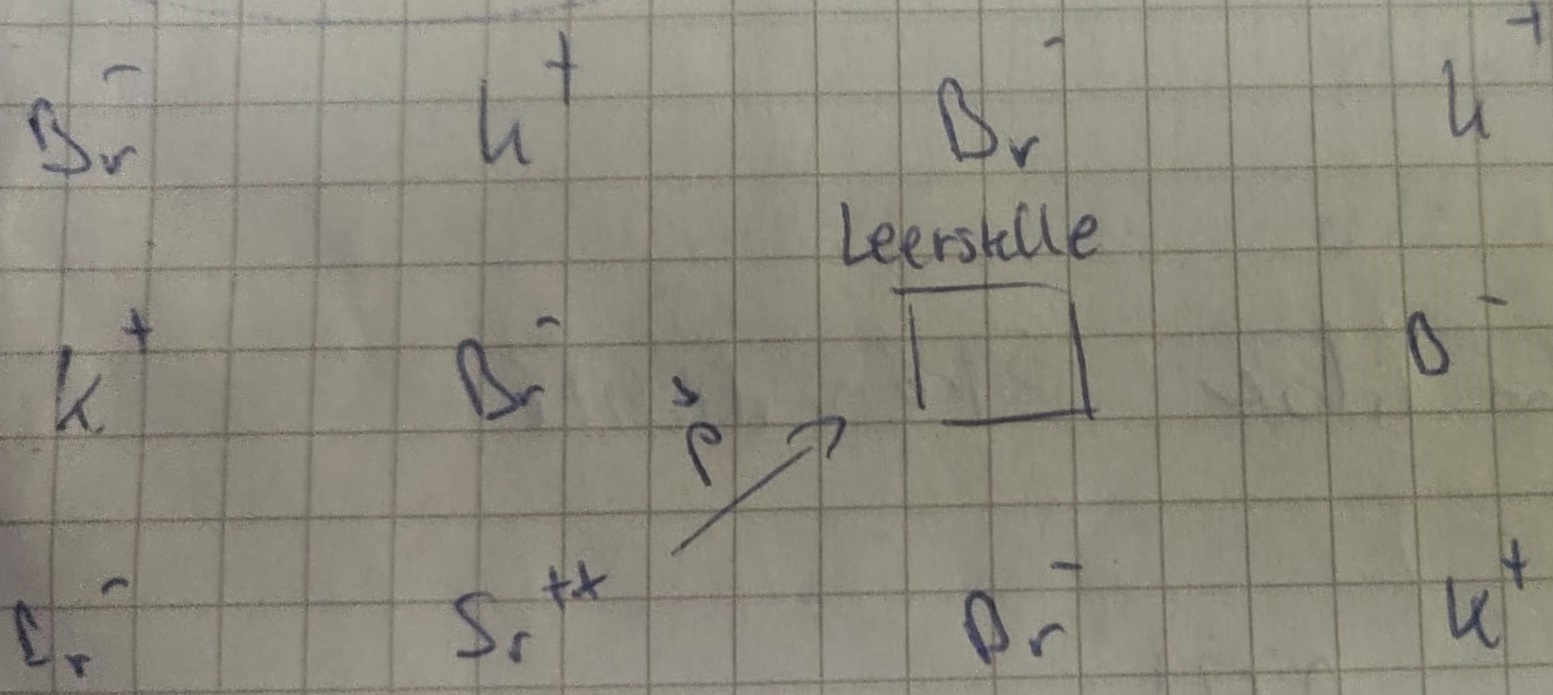 Br⁻ K⁺ Br⁻ K⁺
Leerstelle
K⁺ Br⁻ B⁻
p
Br⁻ Sr⁺⁺ Br⁻ K⁺